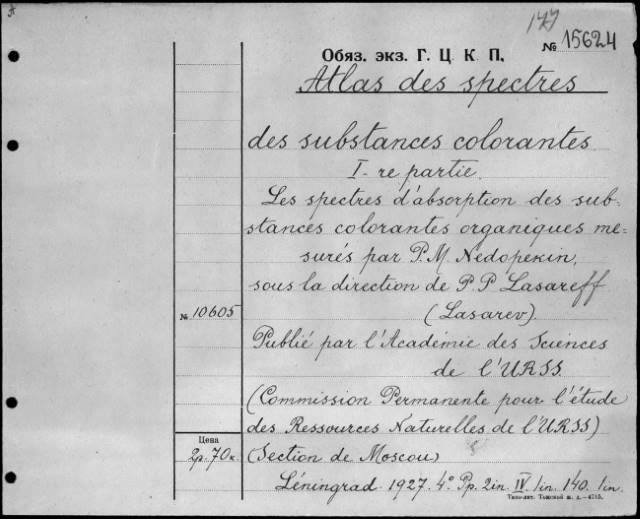 177
№ 15624
Обяз. экз. Г. Ц. К. П.
Atlas des spectres
des substances colorantes
I-re partie.
Les spectres d'absorption des sub-
stances colorantes organiques me-
surés par P. M. Nedopekin,
sous la direction de P. P. Lasareff
(Lasarev).
№ 10605
Publié par l'Académie des Sciences
de l'URSS.
(Commission Permanente pour l'étude
des Ressources Naturelles de l'URSS)
Цена
2р. 70к
(Section de Moscou)
Léningrad 1927. 4° Pp. 2in. IV. 1in. 140. 1in.
Типо-лит. Томской ж. д.